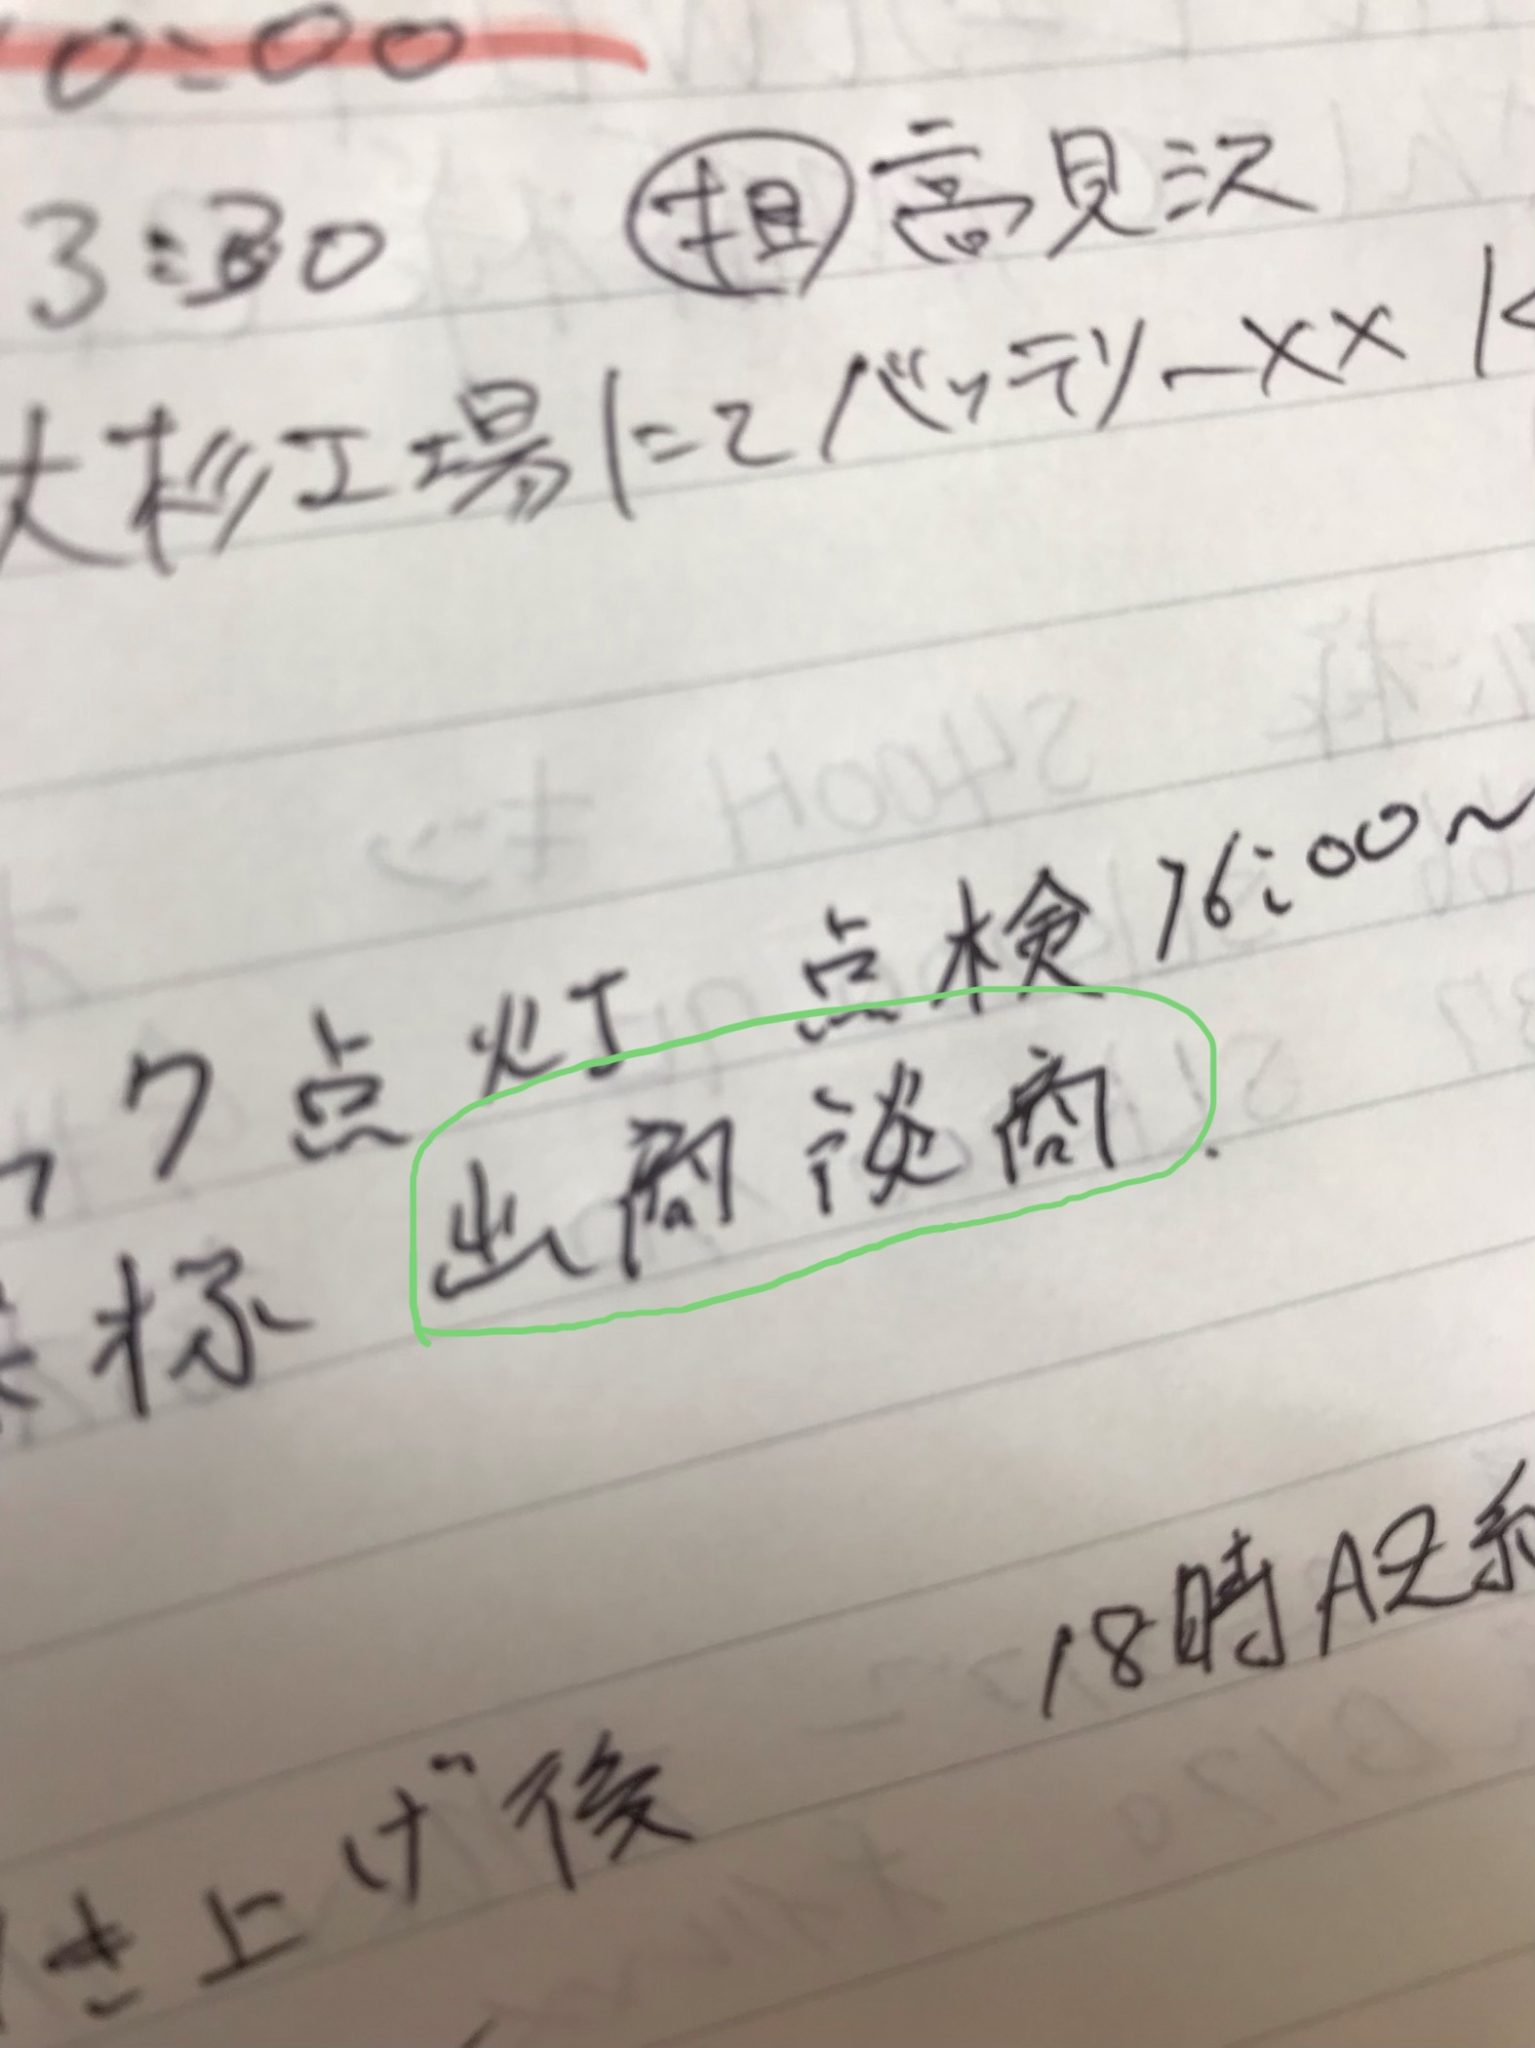 0:00
3:30 担 高見沢
大杉工場にてバッテリー××
ク点灯 点検 16:00～
様 出商談商
18時AZ系
き上げ後